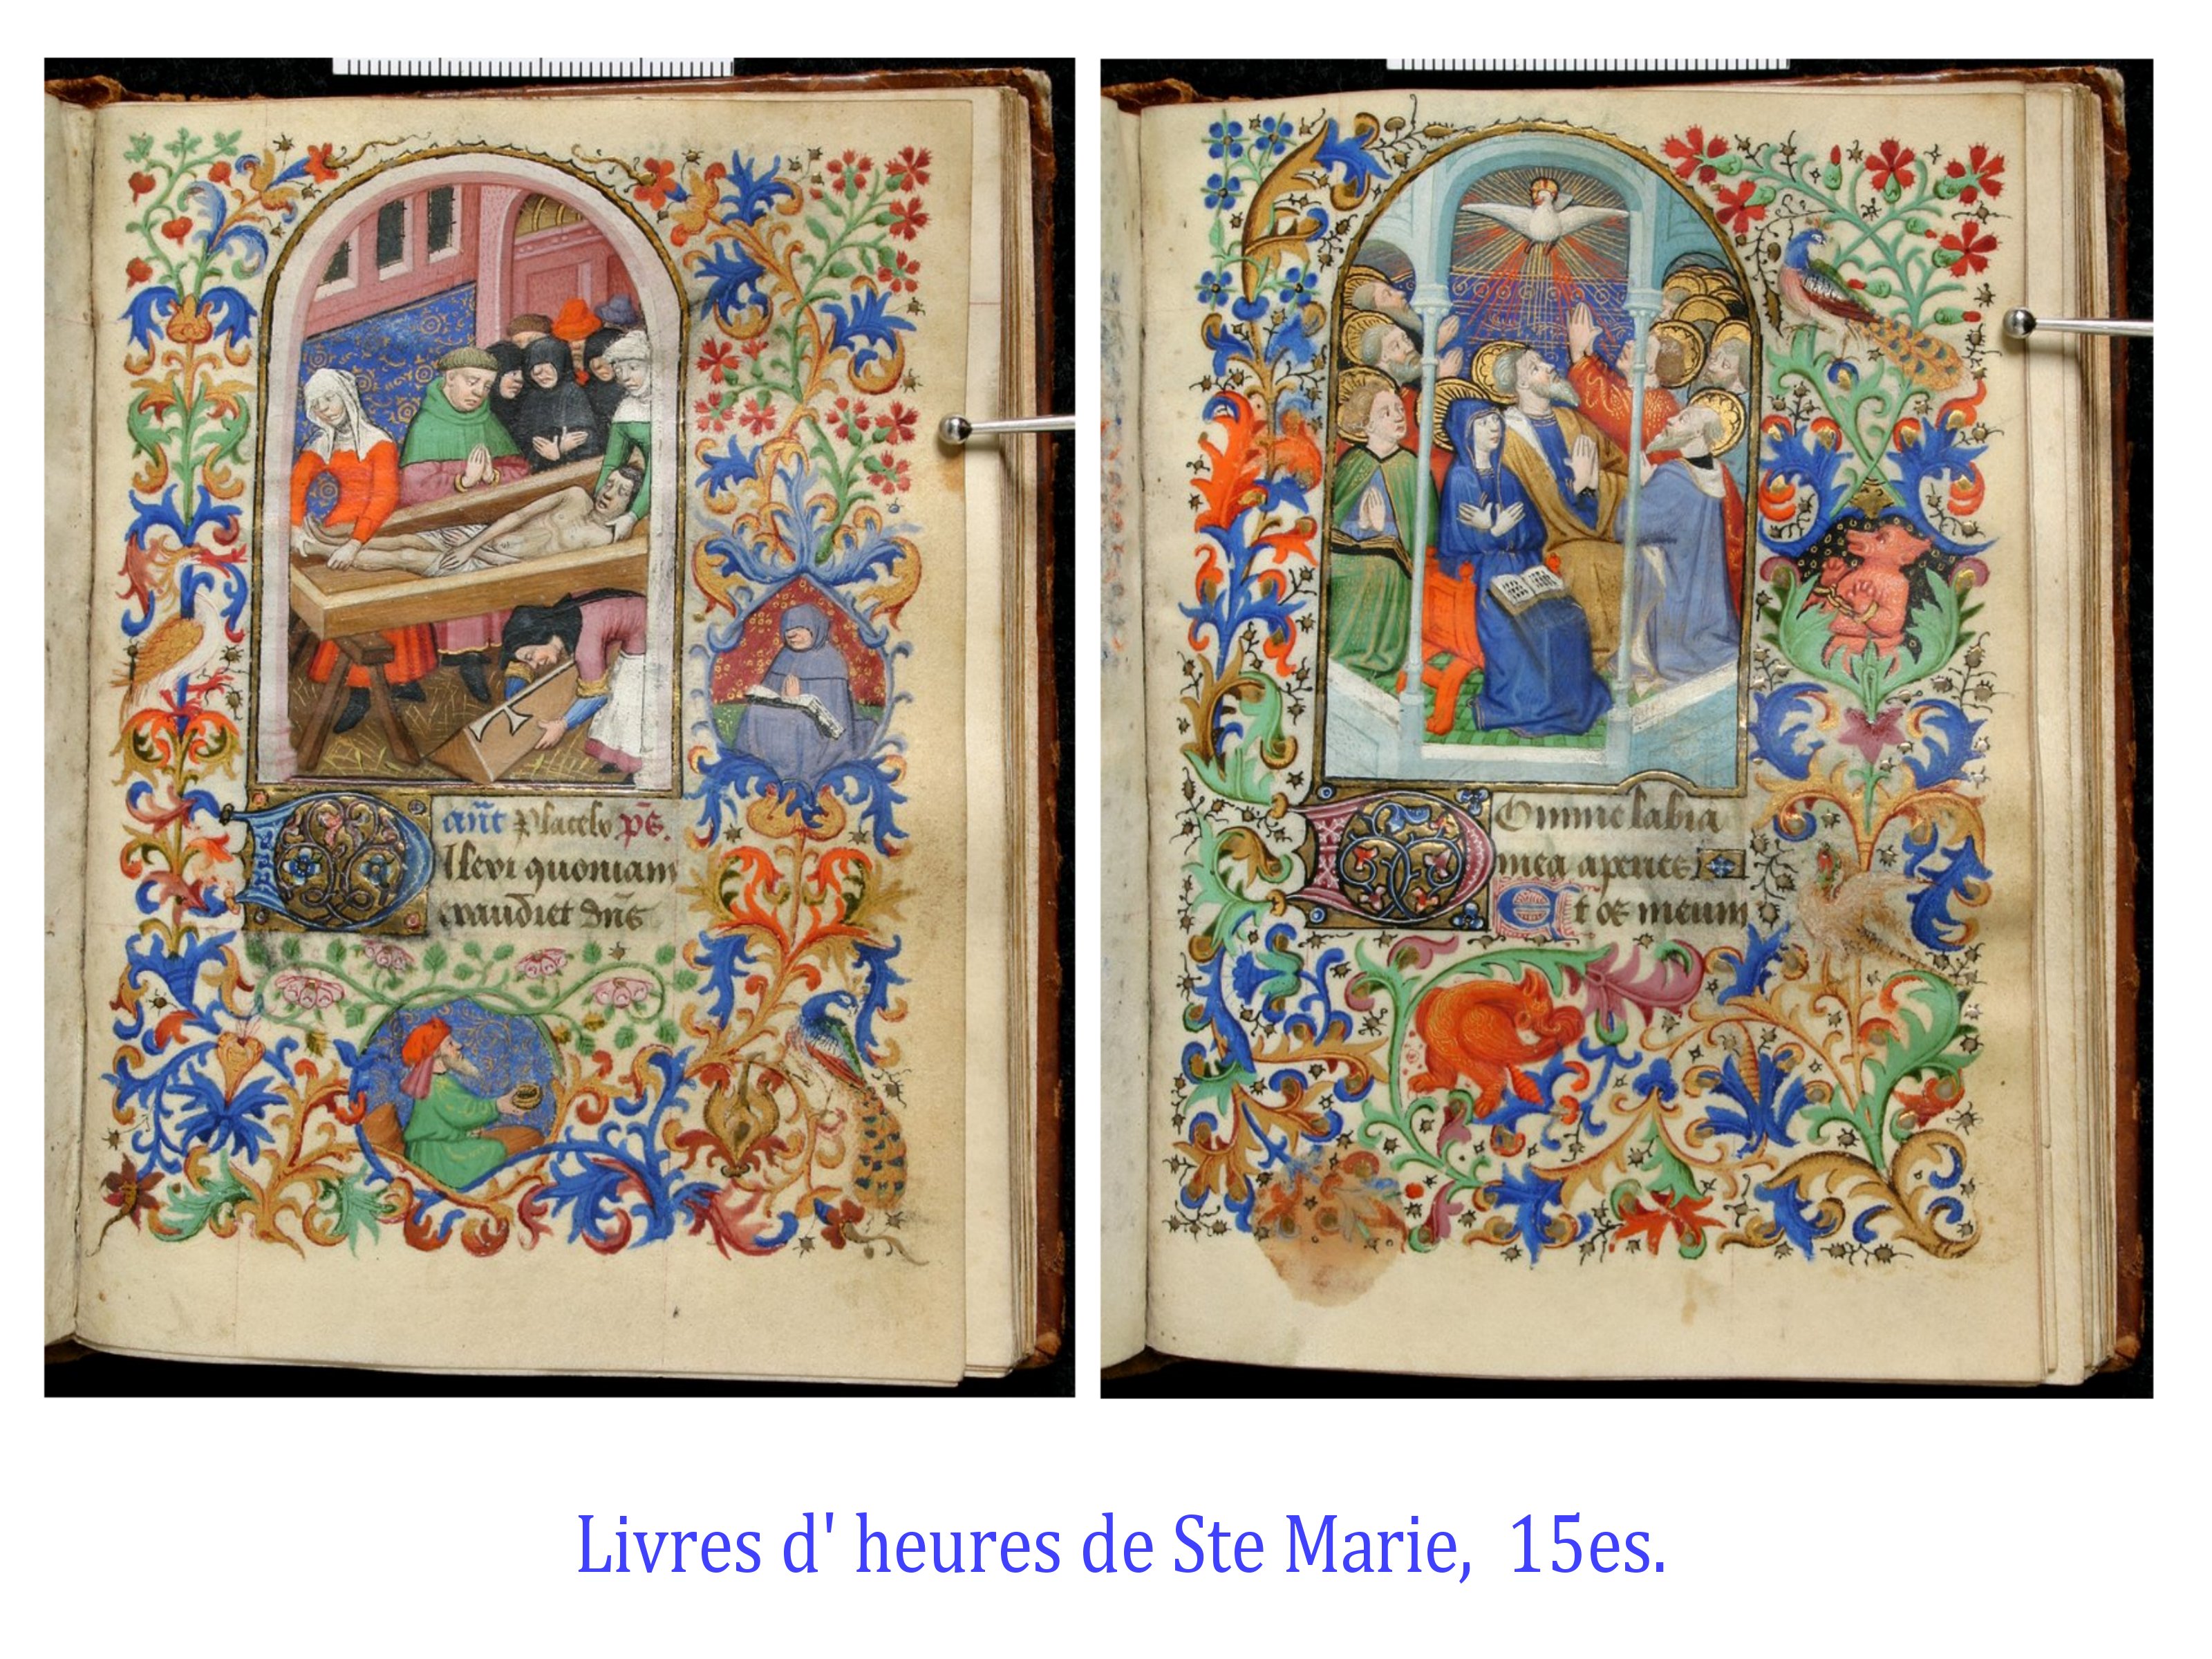 añt Placebo. pš.
Dilexi quoniam
exaudiet dñs
Domine labia
mea aperies
Et os meum
Livres d' heures de Ste Marie,  15es.